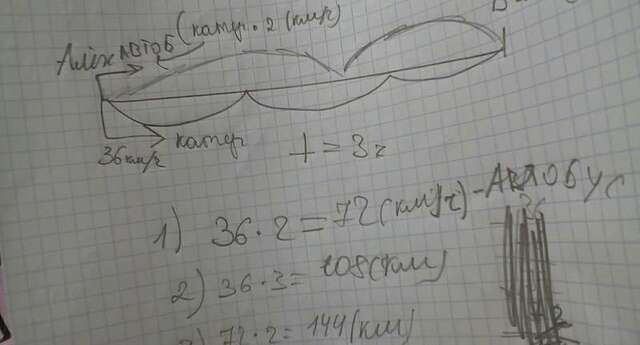 АВТОБ (катер · 2 (км/ч)
36 км/ч катер
t = 3 ч
1) 36 · 2 = 72 (км/ч) - АВТОБУС
2) 36 · 3 = 108 (км)
72 · 2 = 144 (км)